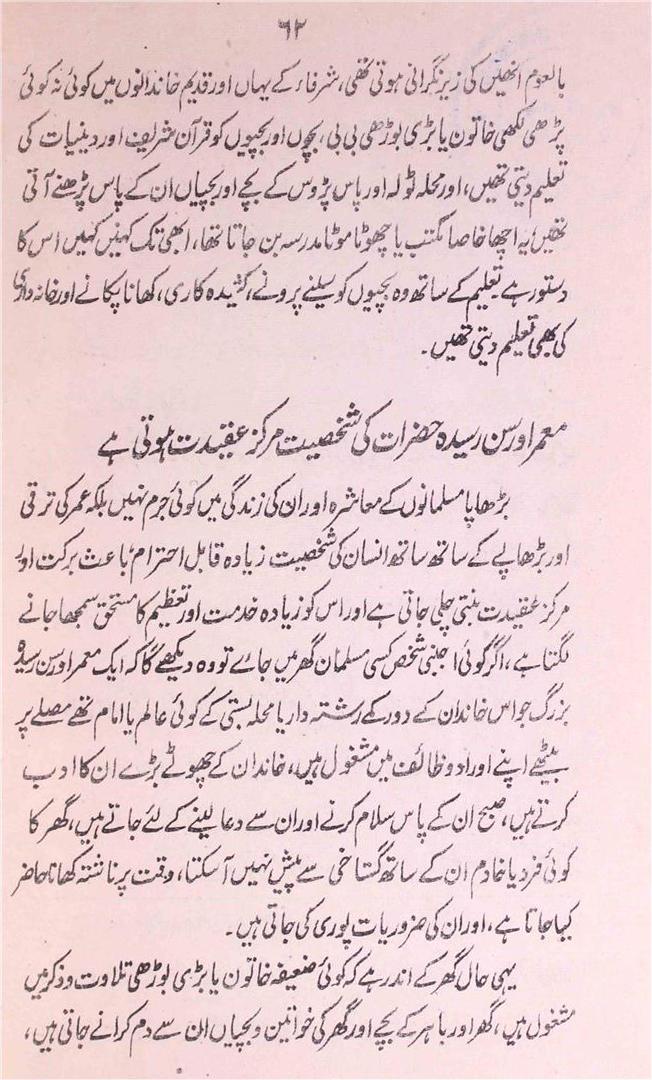 ۶۲
بالعموم انھیں کی زیر نگرانی ہوتی تھی، شرفاء کے یہاں اور قدیم خاندانوں میں کوئی نہ کوئی
پڑھی لکھی خاتون یا بڑی بوڑھی بی بی، بچوں اور بچیوں کو قرآن شریف اور دینیات کی
تعلیم دیتی تھیں، اور محلہ ٹولہ اور پاس پڑوس کے بچے اور بچیاں ان کے پاس پڑھنے آتی
تھیں یہ اچھا خاصا مکتب یا چھوٹا موٹا مدرسہ بن جاتا تھا، ابھی تک کہیں کہیں اس کا
دستور ہے۔ تعلیم کے ساتھ وہ بچیوں کو سینے پرونے، کشیدہ کاری، کھانا پکانے اور خانہ داری
کی بھی تعلیم دیتی تھیں۔
معمر اور سن رسیدہ حضرات کی شخصیت مرکز عقیدت ہوتی ہے
بڑھاپا مسلمانوں کے معاشرہ اور ان کی زندگی میں کوئی جرم نہیں بلکہ عمر کی ترقی
اور بڑھاپے کے ساتھ ساتھ انسان کی شخصیت زیادہ قابل احترام، باعث برکت اور
مرکز عقیدت بنتی چلی جاتی ہے اور اس کو زیادہ خدمت اور تعظیم کا مستحق سمجھا جانے
لگتا ہے، اگر کوئی اجنبی شخص کسی مسلمان گھر میں جائے تو وہ دیکھے گا کہ ایک معمر اور سن رسیدہ
بزرگ جو اس خاندان کے دور کے رشتہ دار یا محلہ بستی کے کوئی عالم یا امام تھے مصلے پر
بیٹھے اپنے اوراد و ظائف میں مشغول ہیں، خاندان کے چھوٹے بڑے ان کا ادب
کرتے ہیں، صبح ان کے پاس سلام کرنے اور ان سے دعا لینے کے لئے جاتے ہیں، گھر کا
کوئی فرد یا خادم ان کے ساتھ گستاخی سے پیش نہیں آ سکتا، وقت پر ناشتہ کھانا حاضر
کیا جاتا ہے، اور ان کی ضروریات پوری کی جاتی ہیں۔
یہی حال گھر کے اندر ہے کہ کوئی ضعیفہ خاتون یا بڑی بوڑھی تلاوت و ذکر میں
مشغول ہیں، گھر اور باہر کے بچے اور گھر کی خواتین و بچیاں ان سے دم کرانے جاتی ہیں،